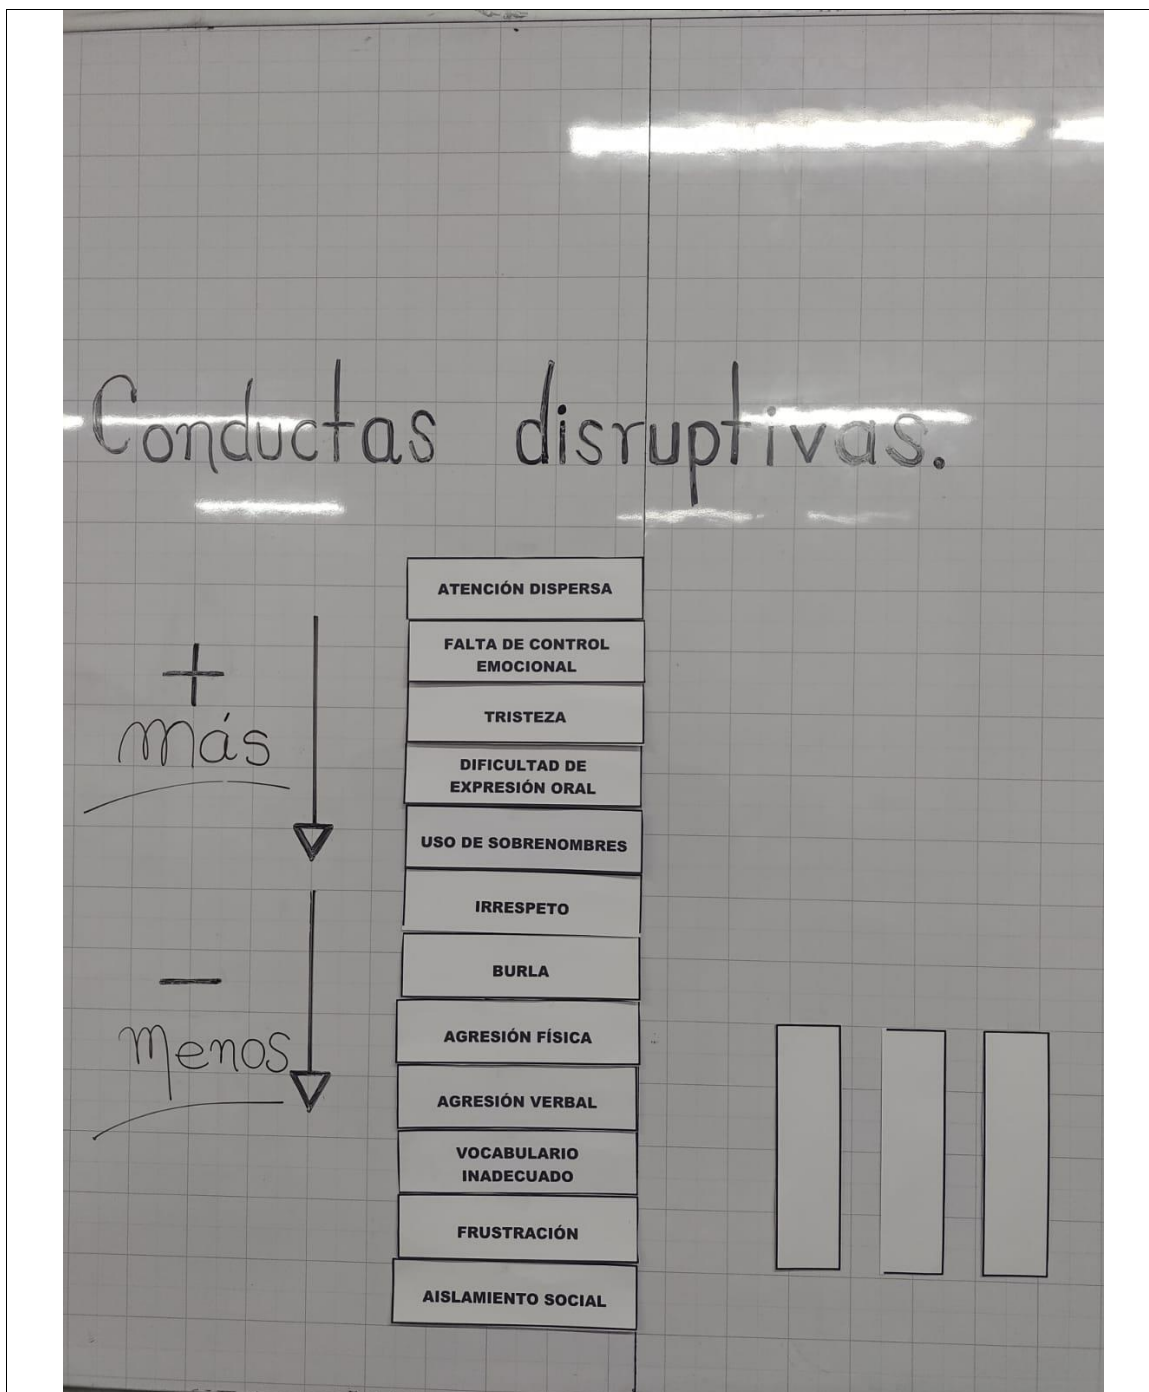 Conductas disruptivas.
ATENCIÓN DISPERSA
FALTA DE CONTROL
EMOCIONAL
+
más
TRISTEZA
DIFICULTAD DE
EXPRESIÓN ORAL
USO DE SOBRENOMBRES
IRRESPETO
BURLA
—
Menos
AGRESIÓN FÍSICA
AGRESIÓN VERBAL
VOCABULARIO
INADECUADO
FRUSTRACIÓN
AISLAMIENTO SOCIAL